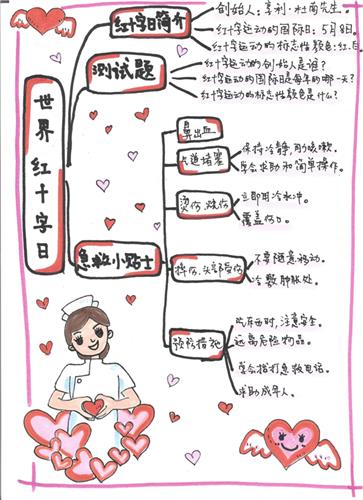 世界红十字日
红十字日简介
创始人：亨利·杜南先生。
红十字运动的国际日：5月8日。
红十字运动的标志性颜色：红色
测试题
红十字运动的创始人是谁？
红十字运动的国际日是每年的哪一天？
红十字运动的标志性颜色是什么？
急救小贴士
鼻出血
气道堵塞
保持冷静，用力咳嗽。
学会求助和简单操作。
烫伤、烧伤
立即用冷水冲。
覆盖伤口。
摔伤、头部受伤
不要随意移动。
冷敷肿胀处。
预防措施
吃东西时，注意安全。
远离危险物品。
学会拨打急救电话。
求助成年人。